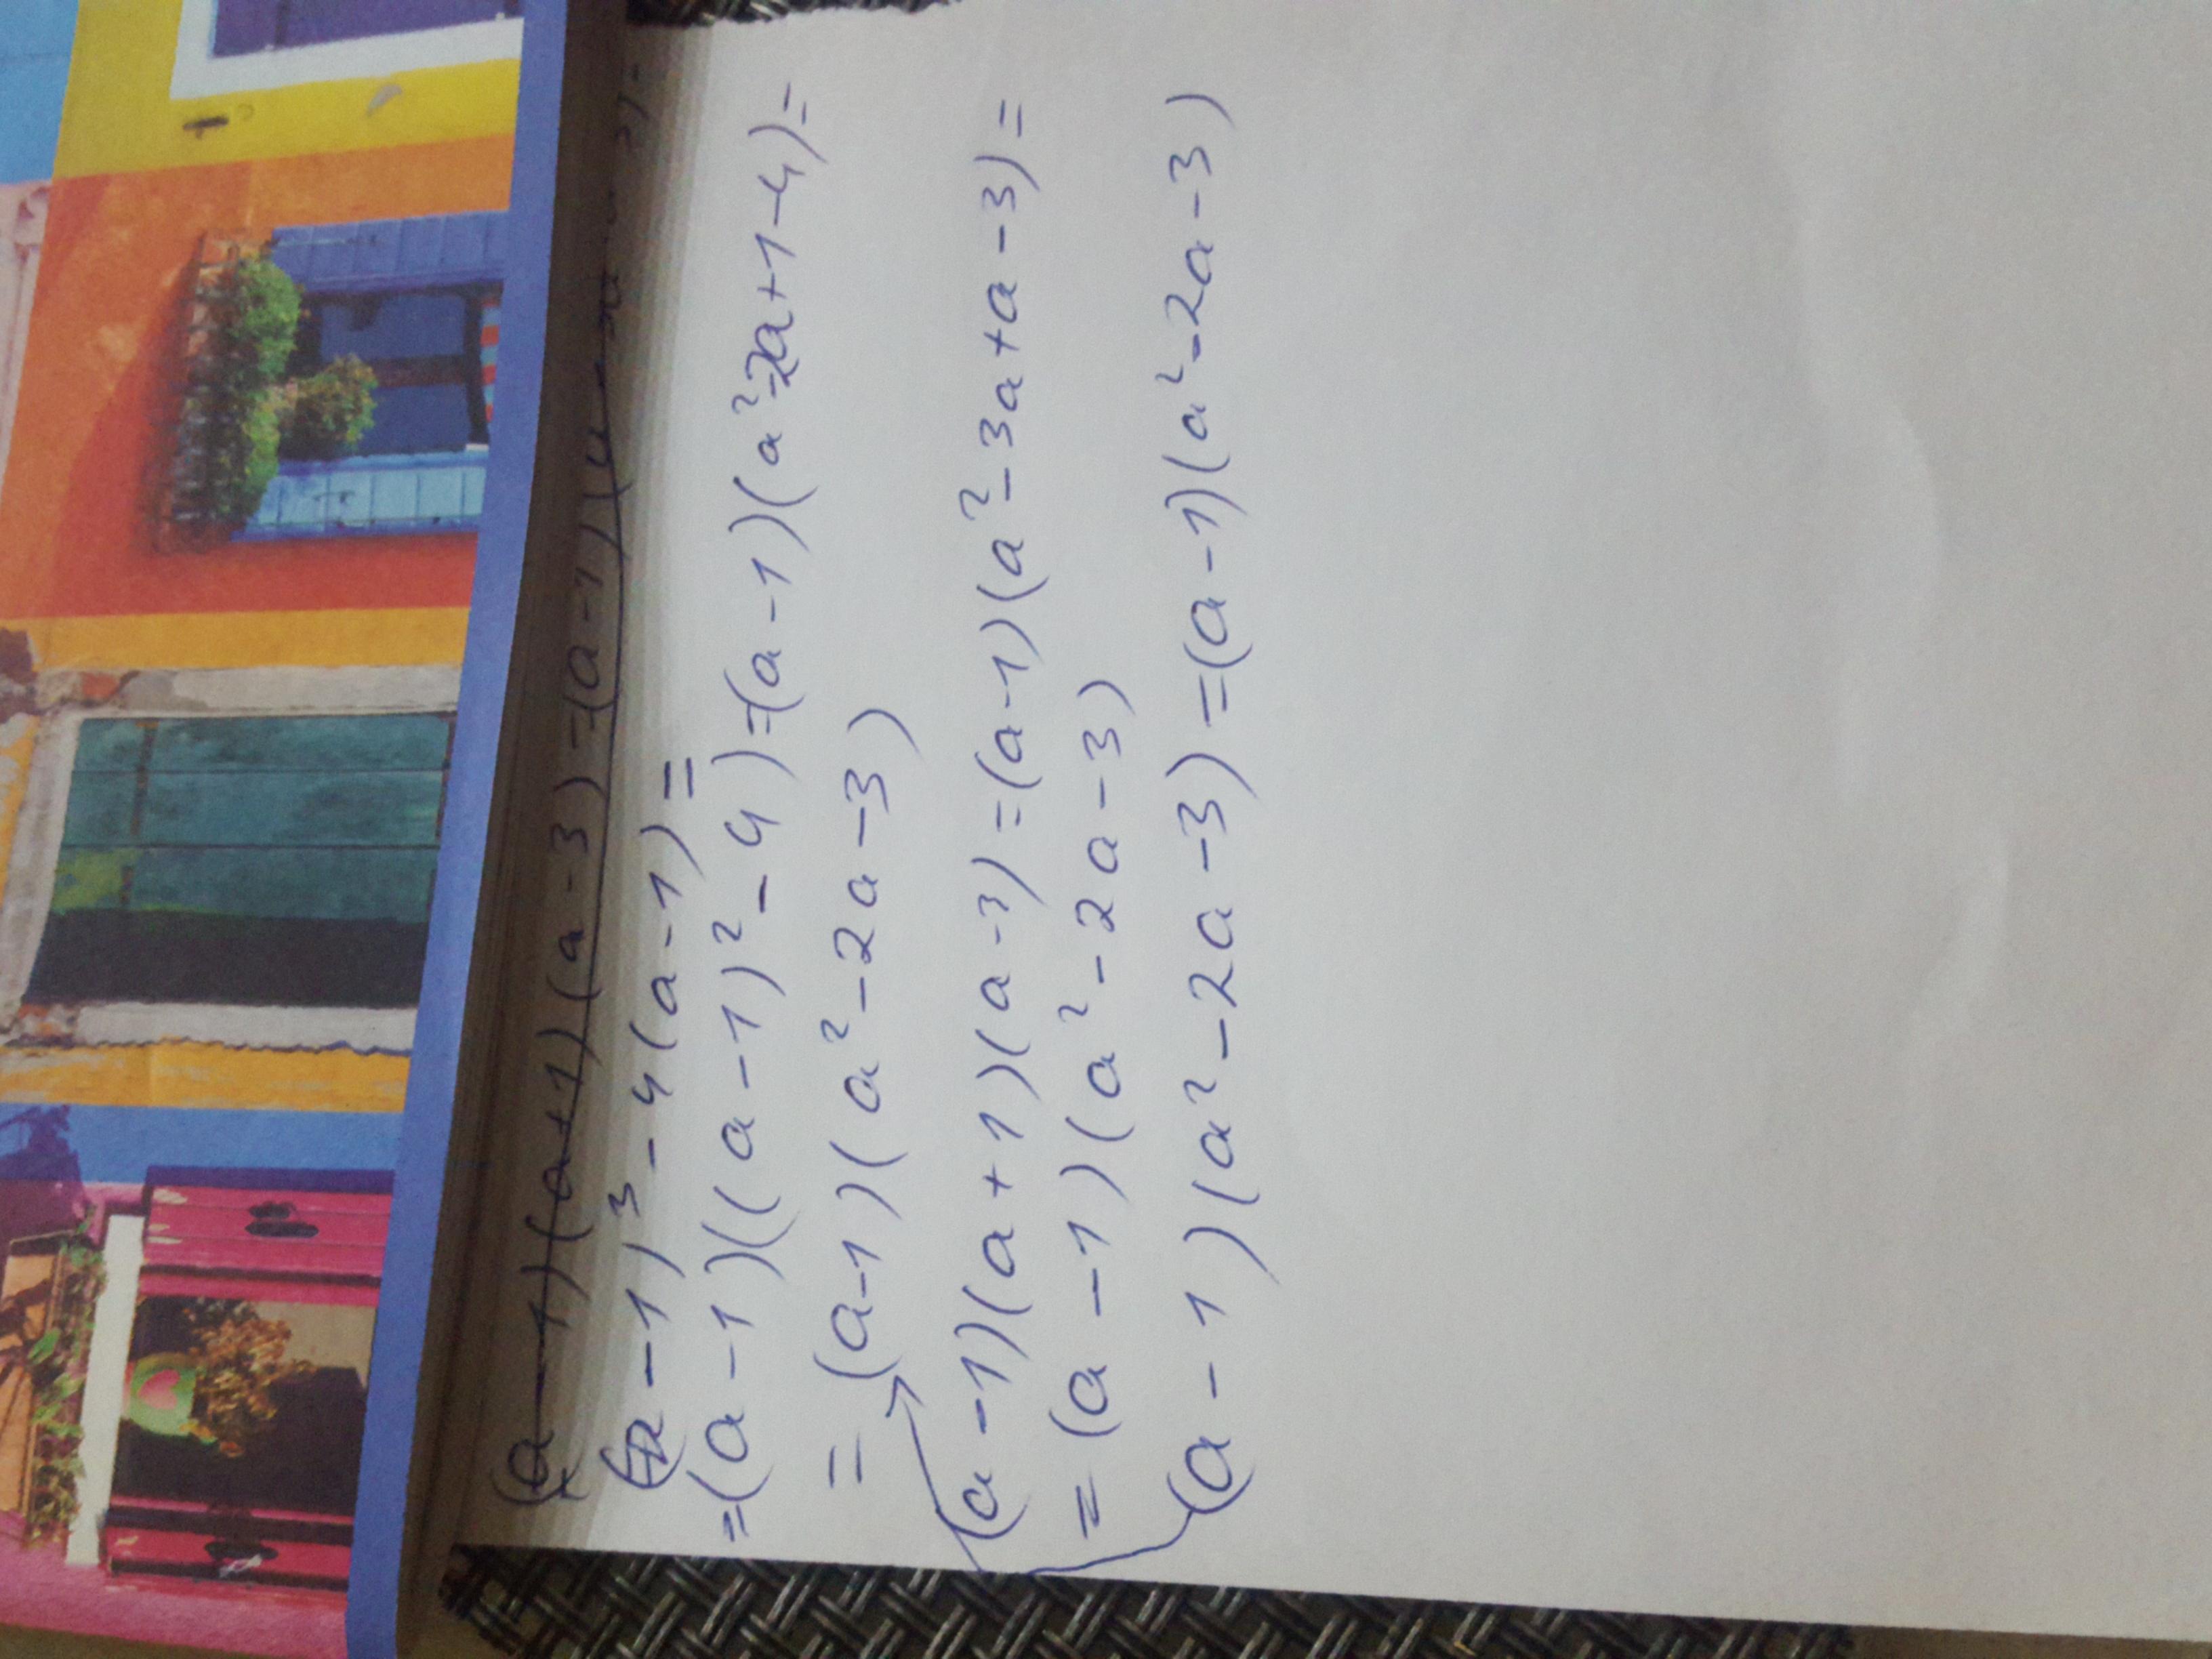 (a-1)(a+1)(a-3)=(a-1)
(a-1)³-4(a-1)=
=(a-1)((a-1)²-4)=(a-1)(a²-2a+1-4)=
=(a-1)(a²-2a-3)
(a-1)(a+1)(a-3)=(a-1)(a²-3a+a-3)=
=(a-1)(a²-2a-3)
(a-1)(a²-2a-3)=(a-1)(a²-2a-3)